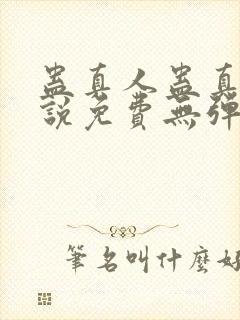 蛊真人蛊真
說免費無彈
筆名叫什麼好